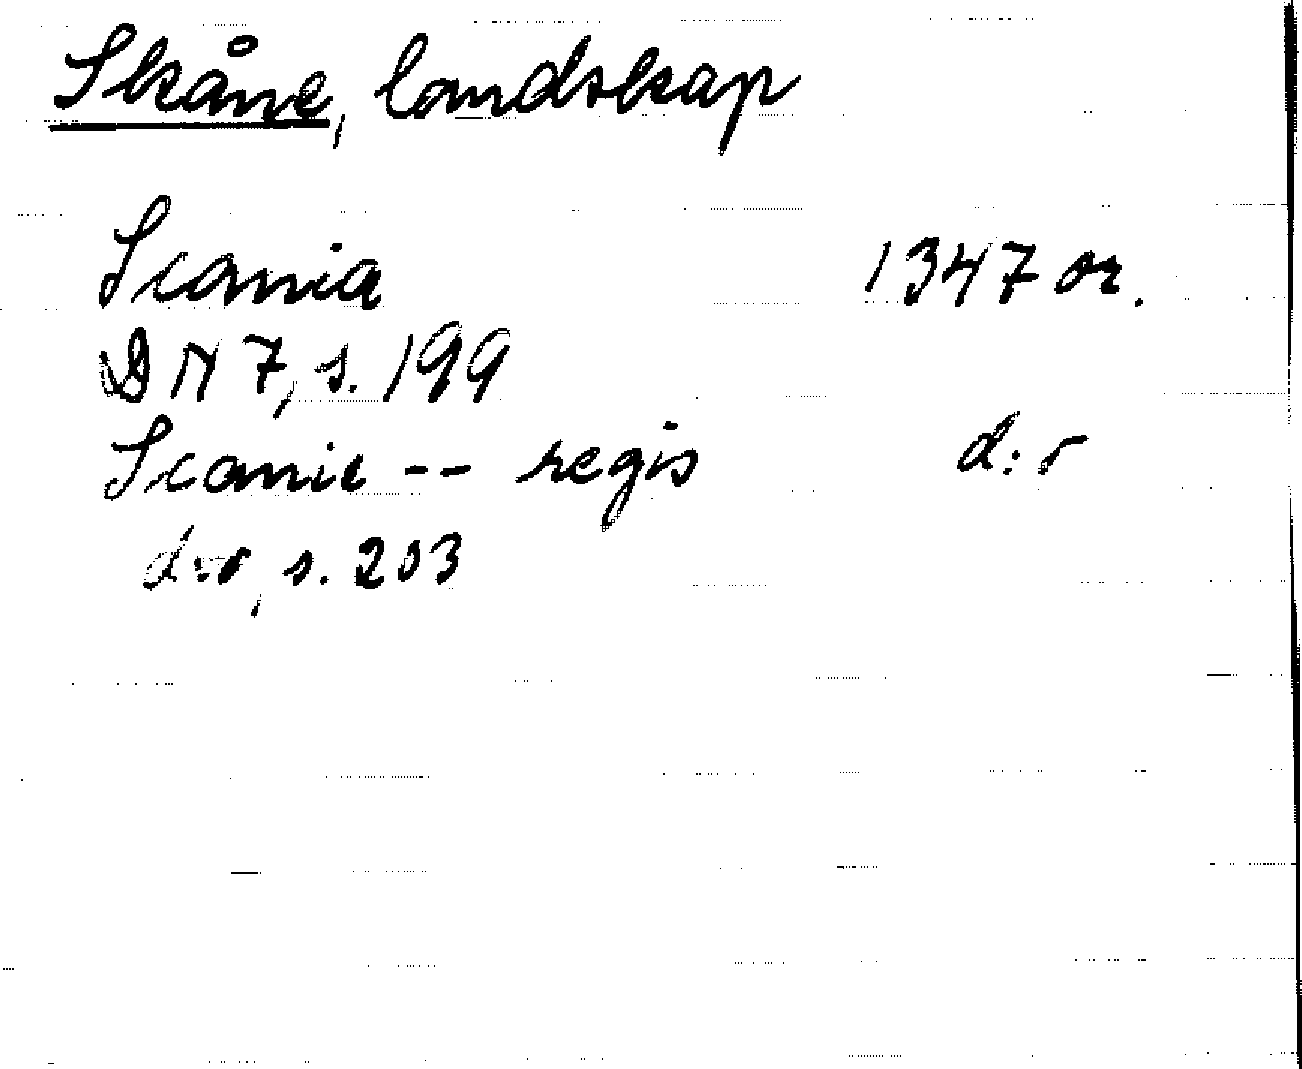 Skåne, landskap
Scania 1347 or.
DN 7, s. 199
Scanie -- regis d:o
d:o, s. 203